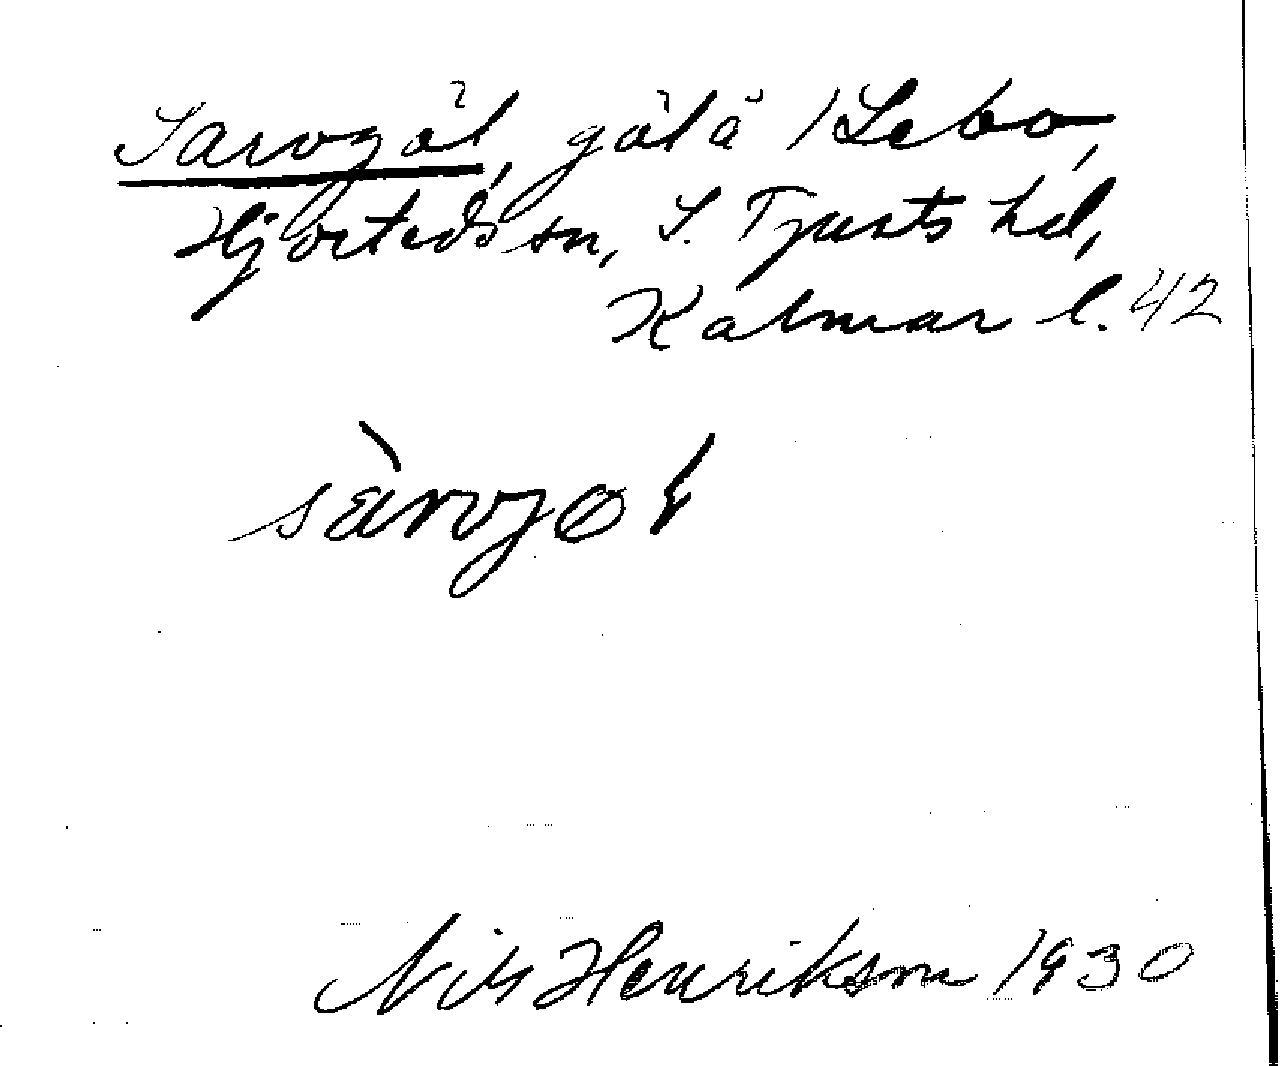 Sarvgöl, göl å 1 Lebo,
Hjorteds sn, S. Tjusts hd,
Kalmar l. 42
sàrvjøł
Nils Henrikson 1930